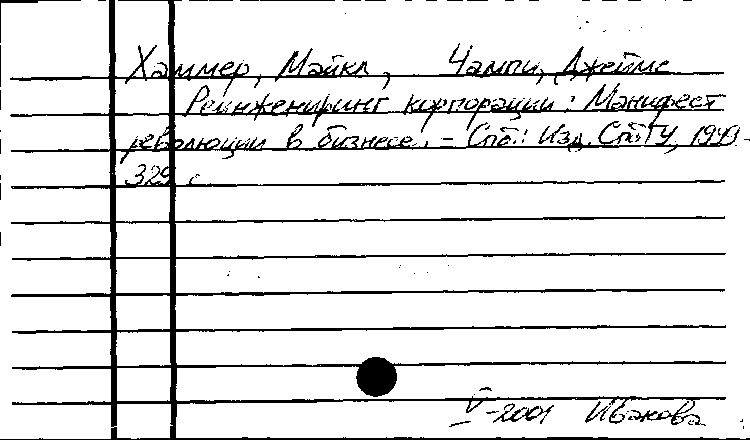 Хаммер, Майкл, Чампи, Джеймс
Реинжениринг корпорации: Манифест
революции в бизнесе. – Спб.: Изд. СпбГУ,
329 с
V-2001